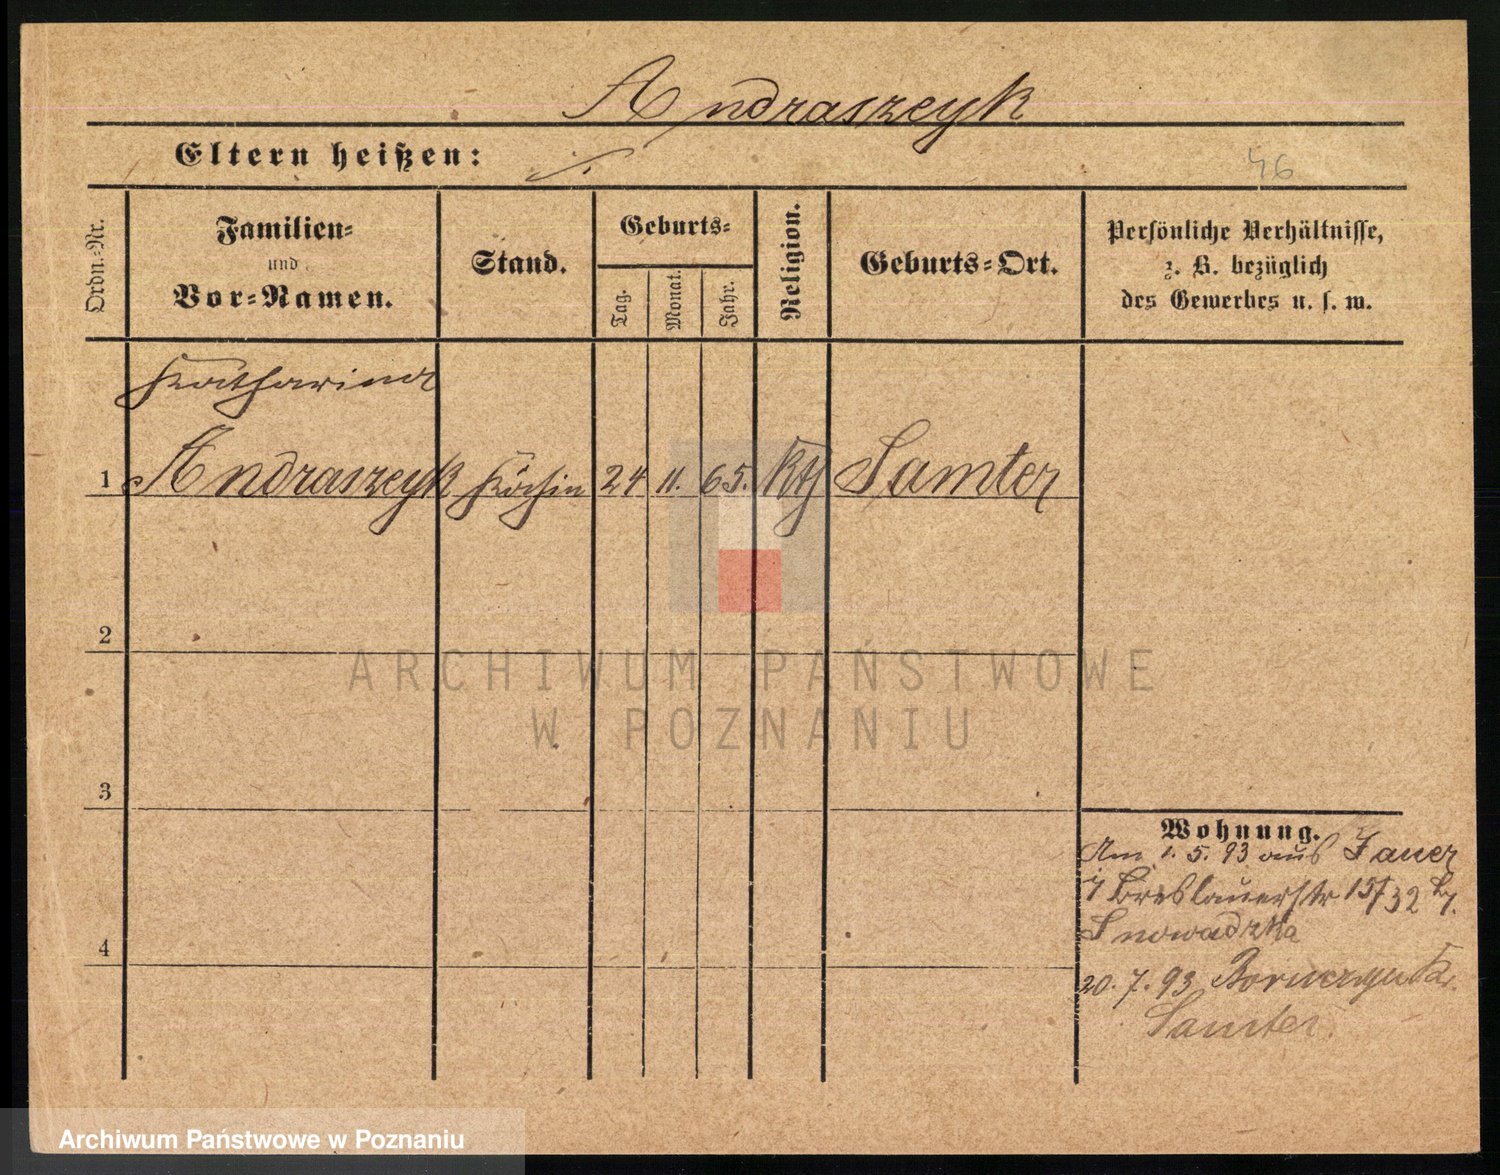 Andraszeyk
Eltern heißen: ./.
46
Ordn.-Nr.
Familien-
und
Vor-Namen.
Stand.
Geburts-
Tag.
Monat.
Jahr.
Religion.
Geburts-Ort.
Persönliche Verhältnisse,
z. B. bezüglich
des Gewerbes u. s. w.
Katharina
1 Andraszeyk Köchin 24 11. 65. Kth Samter
2
3
4
Wohnung.
Am 1. 5. 93 aus Jauer
Breslauerstr 15/32 b/.
Snowadzka
20. 7. 93 Kr.
Samter.
ARCHIWUM PAŃSTWOWE
W POZNANIU
Archiwum Państwowe w Poznaniu